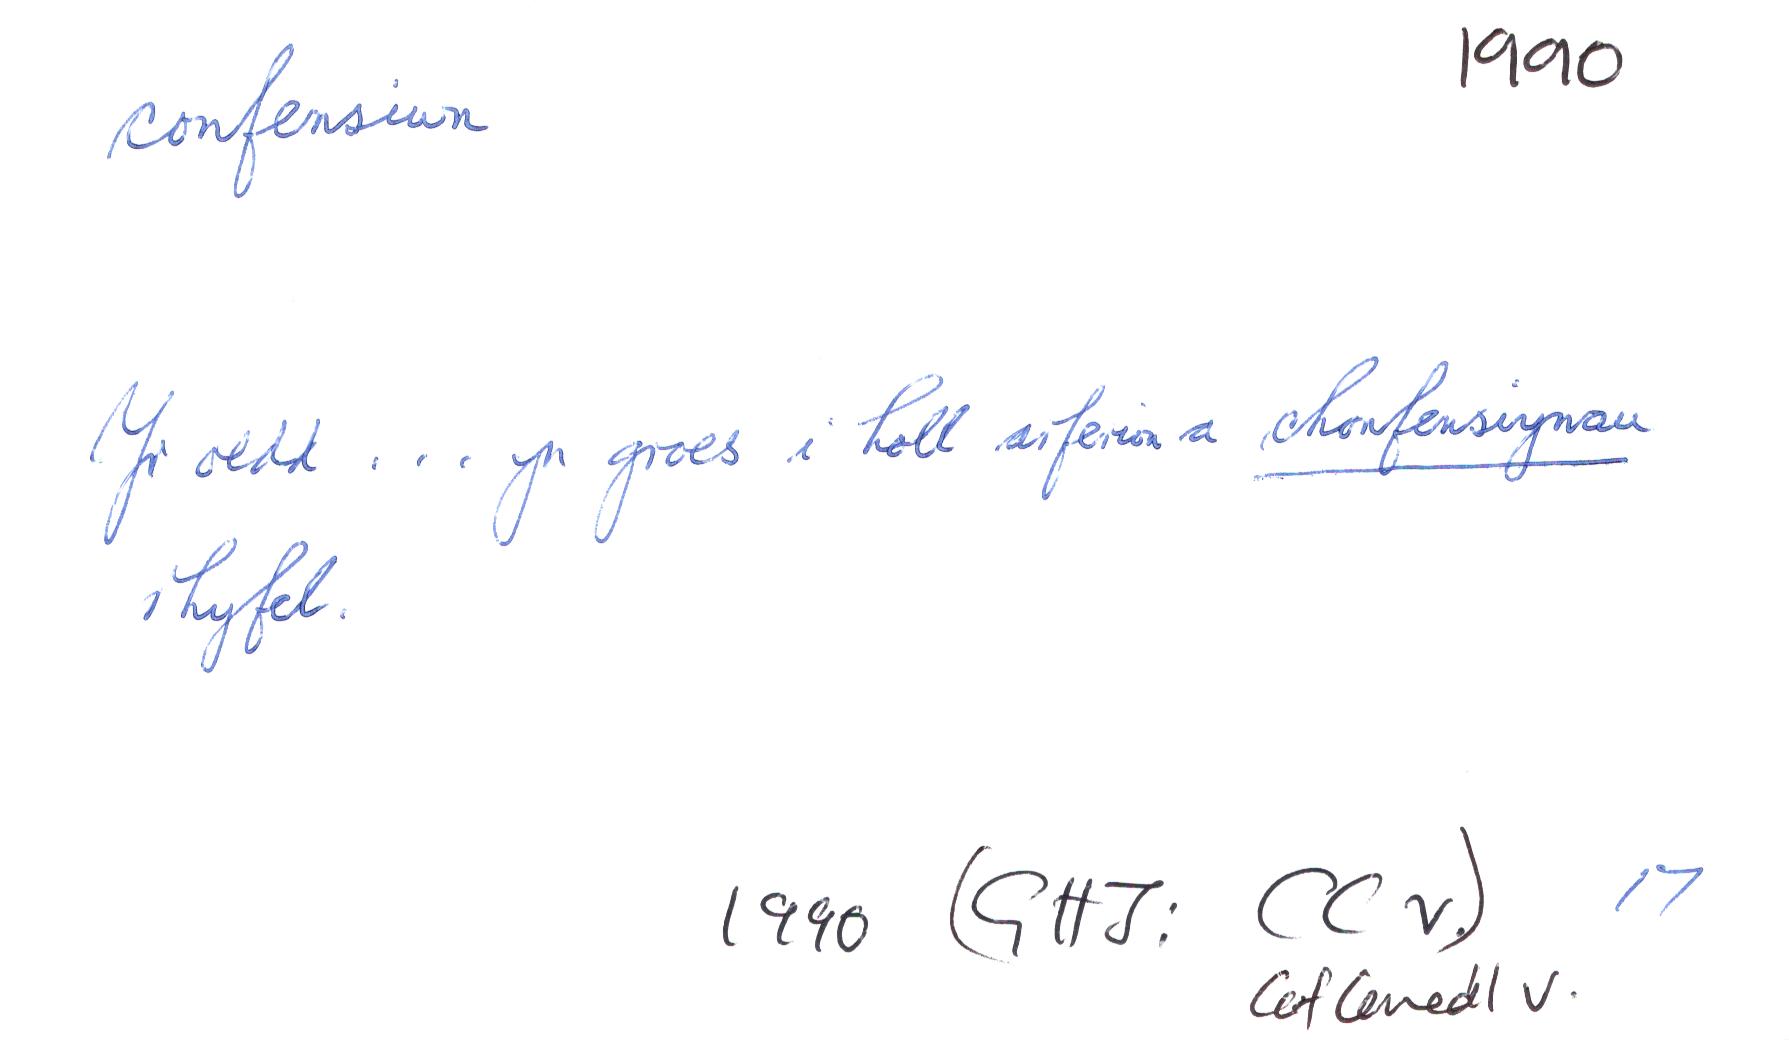 1990
confensiwn
Yr oedd . . . yn groes i holl arferion a chonfensiynau
rhyfel.
1990 (GHJ: CC v.) 17
Cof Cenedl v.